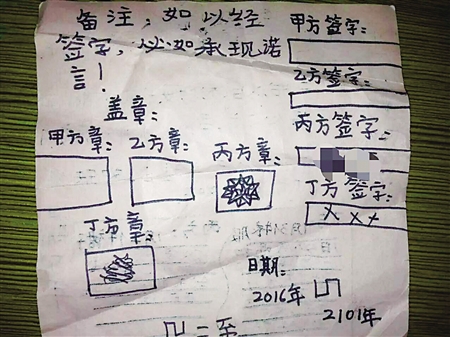 备注：如以经
签字，以如承现诺
言！
盖章：
甲方签字：
乙方签字：
丙方签字：
丁方签字：
×××
甲方章：
乙方章：
丙方章：
丁方章：
日期：
2016年
2101年